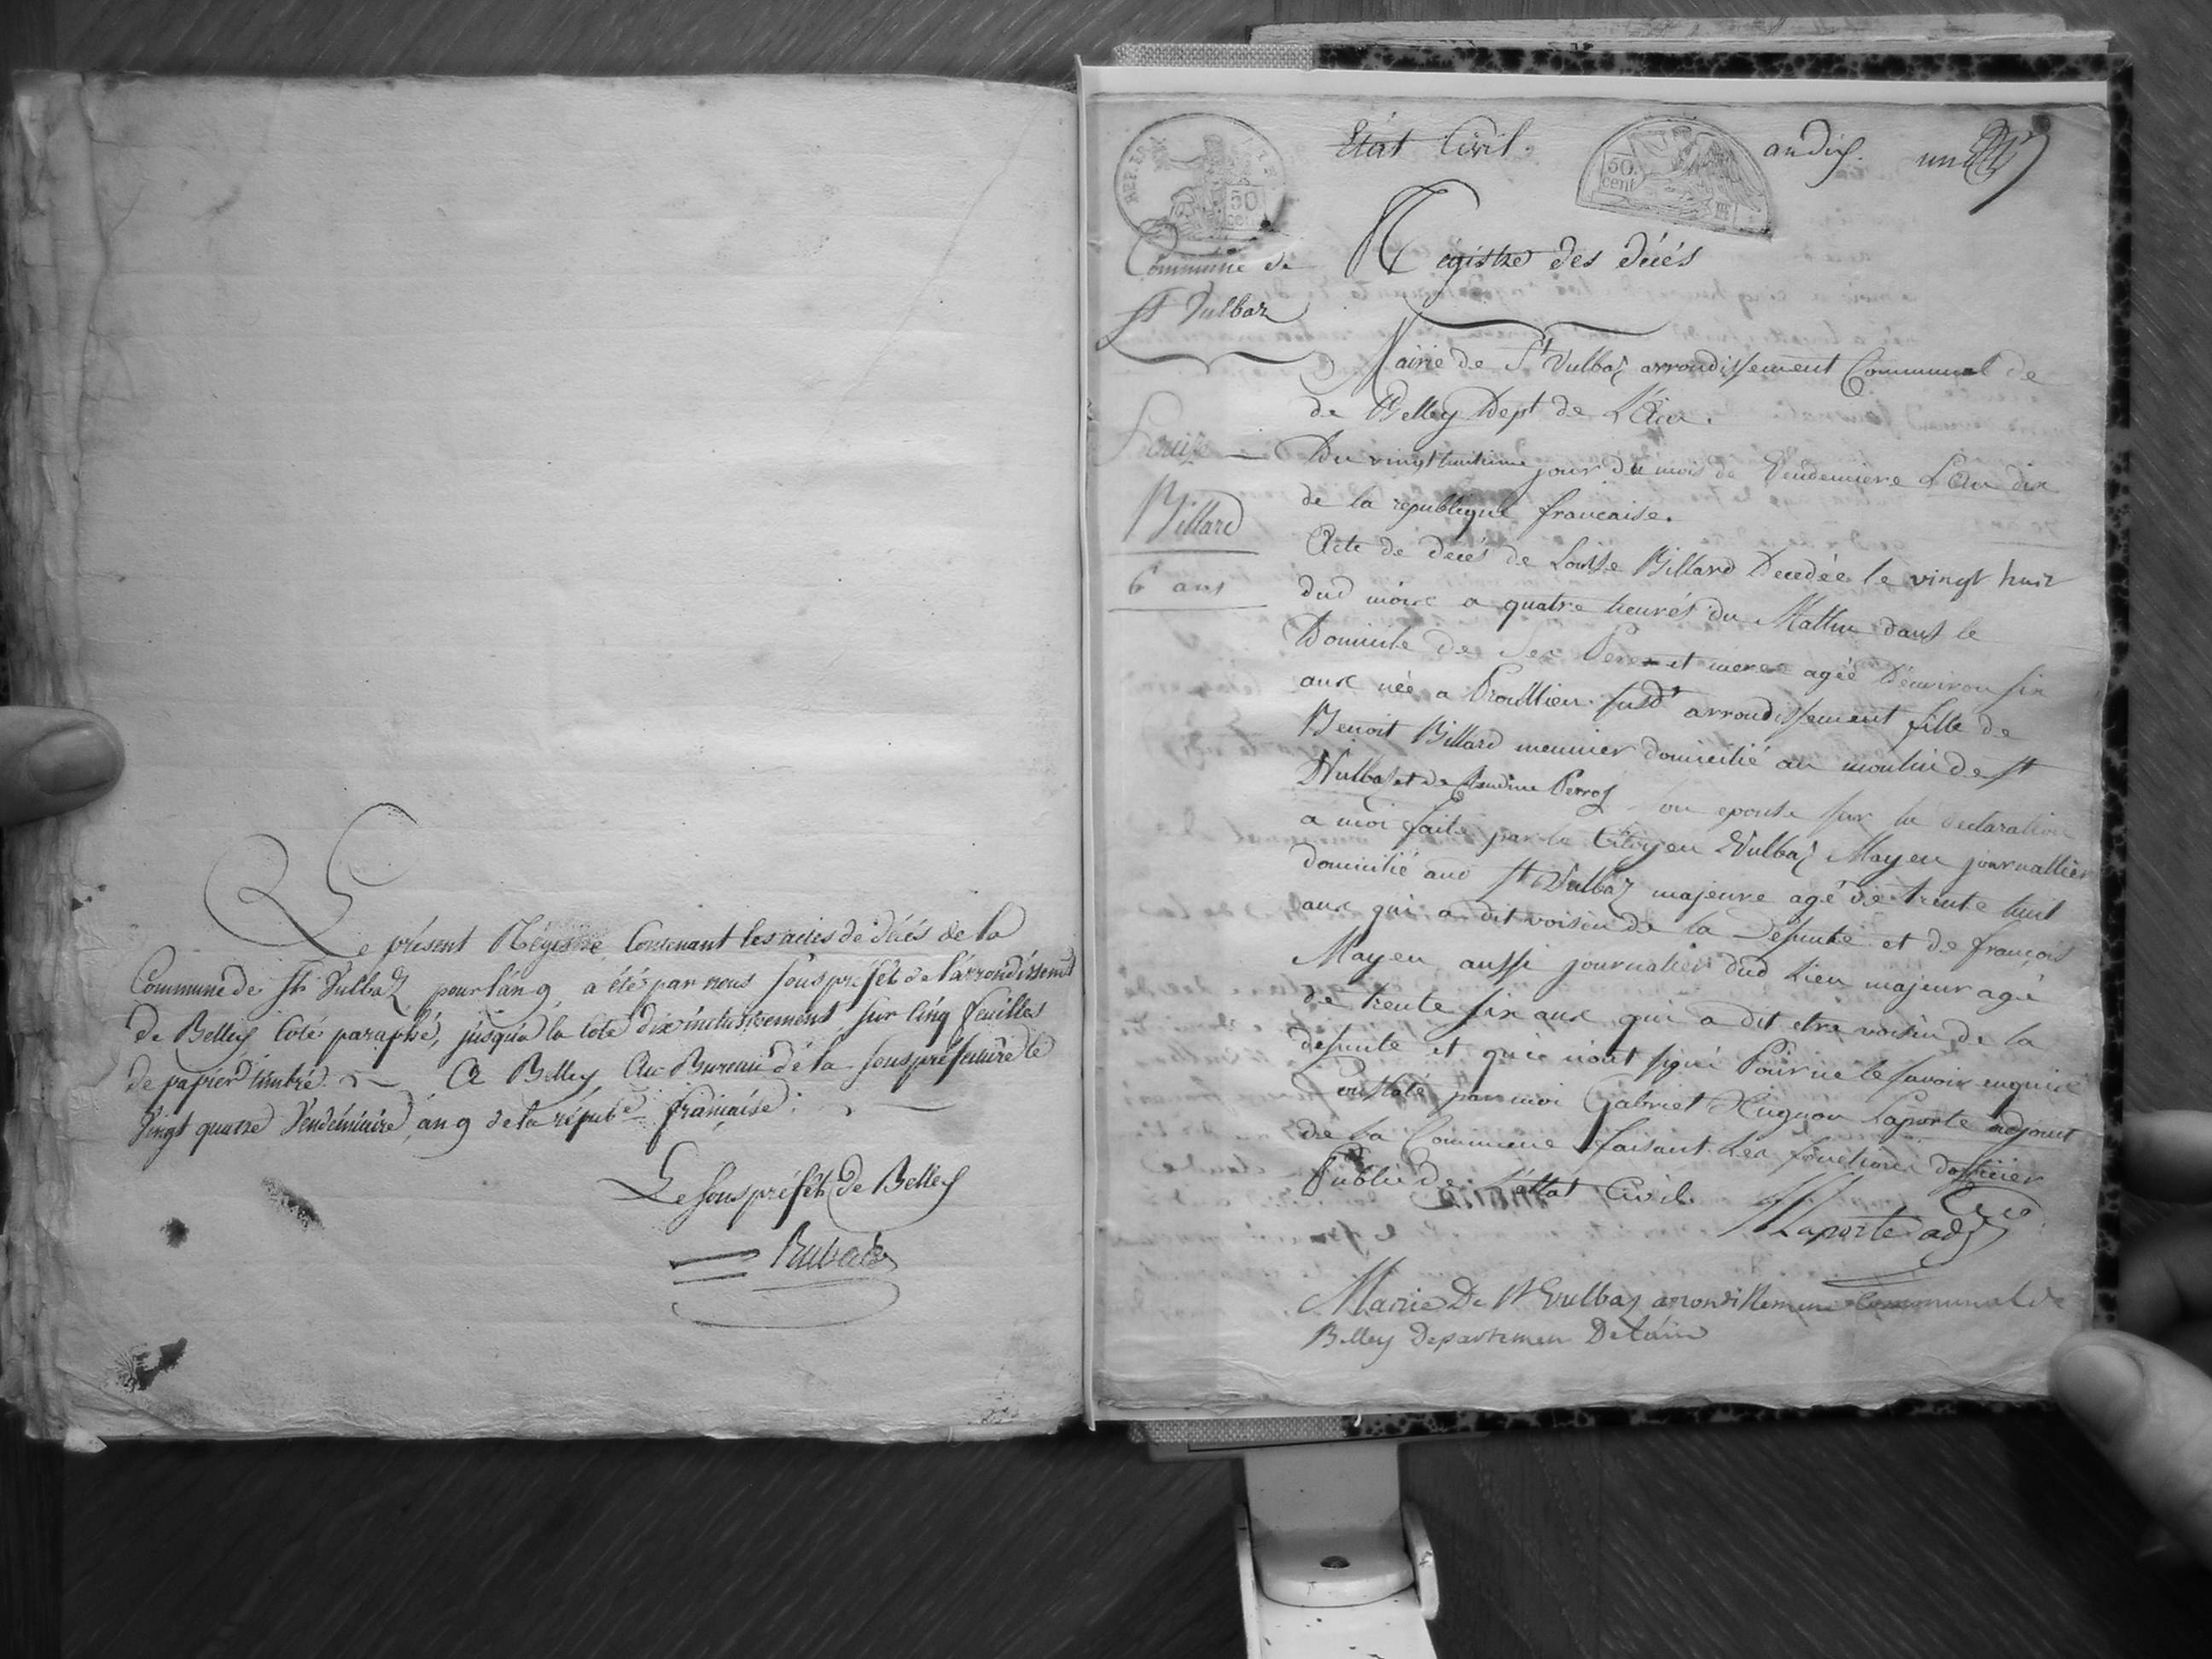 Le présent Régistre Contenant les actes de décés de la
Commune de St Vulbaz pour l'an 9 a été par nous sous préfêt de l'arrondissemt
de Belley Coté paraphé, jusqu'a la Cote dix inclusivement sur Cinq feuilles
de papier timbré. A Belley Au Bureau de la souspréfecture le
Vingt quatre Vendémiaire an 9 de la répube française.
Le Sous préfêt de Belley
REP. FRA.
50
cent
Etat Civil.
50
cent
an dix.
un
Commune de
St Vulbaz
Régistre des décés
Mairie de St Vulbaz arrondissement Communal de
de Belley Dept de L'Ain.
Louise
Billard
6 ans
Du vingt huitieme jour du mois de Vendemiere L'an dix
de la republique francaise.
Acte de decés de Louise Billard Decedée le vingt huit
dud moix a quatre heurés du Mattin dans le
Domicile de Sex Pere et mere agée D'environ six
anx née a Proullieu susdt arrondissement fille de
Benoit Billard meunier domicilié au moulin de St
Vulbaz et de Claudine Perroz son epouse sur la declaration
a moi faite par le Citoyen Vulbaz Moyen journallier
domicilié aud St Vulbaz majeure agé de trente huit
anx qui a dit voisin de la Defunte et de françois
Moyen aussi journalier dud Lieu majeur agé
de trente six anx qui a dit etre voisin de la
defunte et qui n'ont signé Pour ne le savoir enquis
Constaté par moi Gabriel Hugon Laporte adjoint
de la Commune faisant Lex fonctions d'officier
Public de L'ettat Civil.
Laporte adj
Mairie De St Vulbaz arrondissement Communal de
Belley Departemen De lain